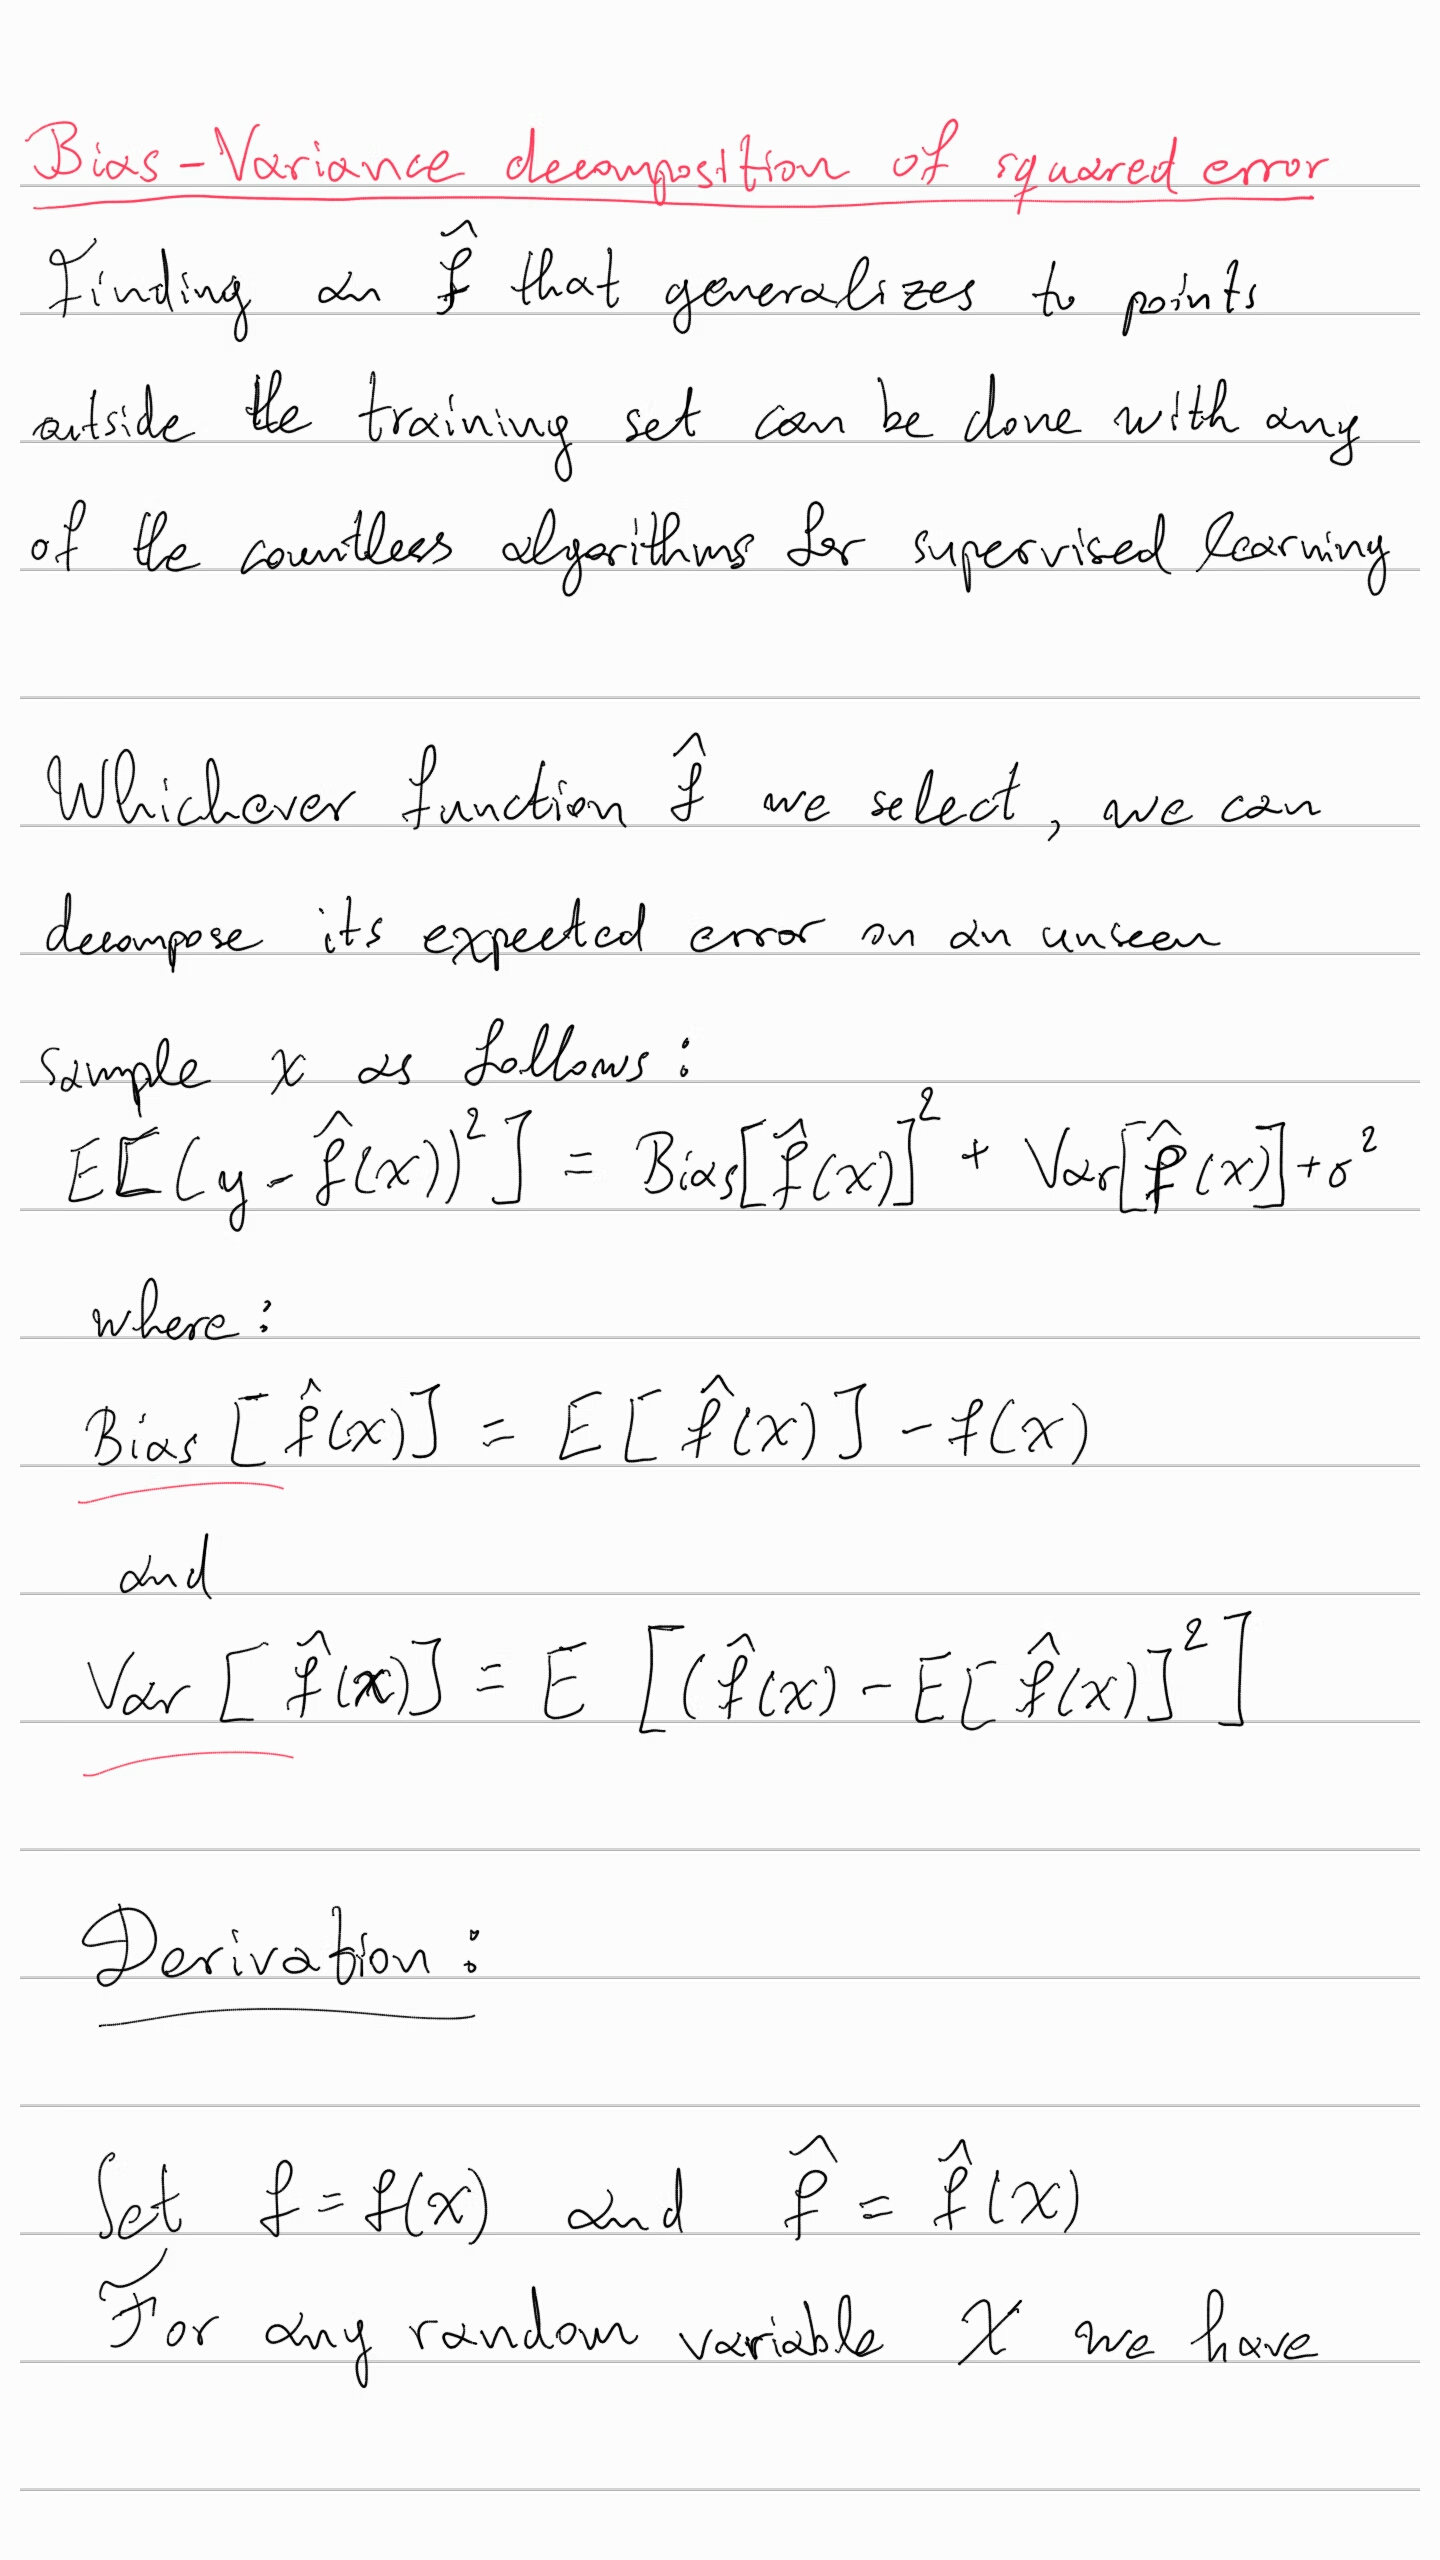 Bias-Variance decomposition of squared error
Finding an f̂ that generalizes to points
outside the training set can be done with any
of the countless algorithms for supervised learning
Whichever function f̂ we select, we can
decompose its expected error on an unseen
sample x as follows:
E[(y - f̂(x))²] = Bias[f̂(x)]² + Var[f̂(x)] + σ²
where:
Bias [f̂(x)] = E[f̂(x)] - f(x)
and
Var [f̂(x)] = E [(f̂(x) - E[f̂(x)]²]
Derivation:
Set f = f(x) and f̂ = f̂(x)
For any random variable X we have